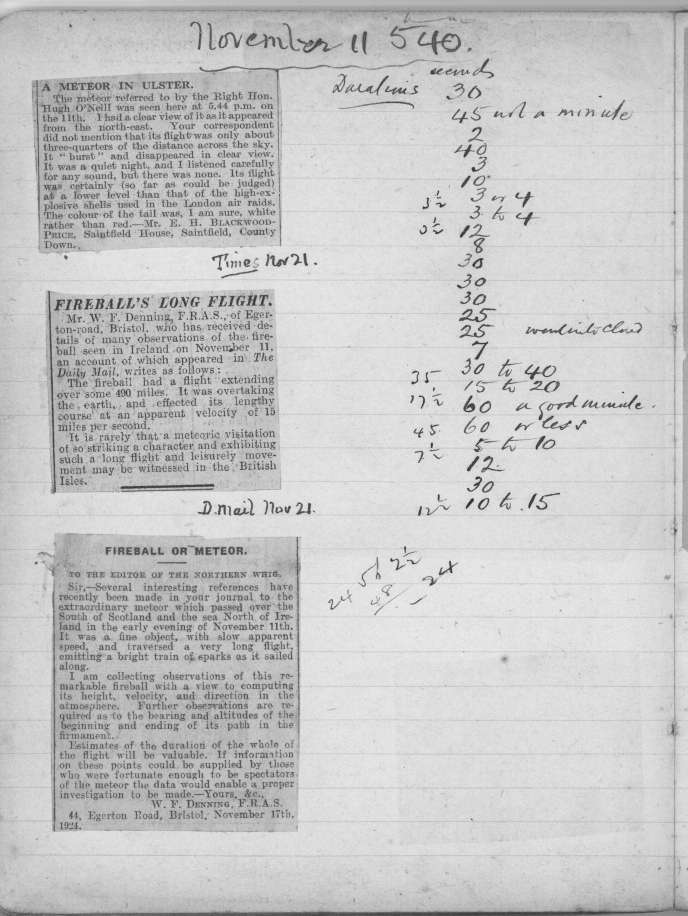 November 11 5 40.
A METEOR IN ULSTER.
The meteor referred to by the Right Hon.
Hugh O'Neill was seen here at 5.44 p.m. on
the 11th. I had a clear view of it as it appeared
from the north-east. Your correspondent
did not mention that its flight was only about
three-quarters of the distance across the sky.
It "burst" and disappeared in clear view.
It was a quiet night, and I listened carefully
for any sound, but there was none. Its flight
was certainly (so far as could be judged)
at a lower level than that of the high-ex-
plosive shells used in the London air raids.
The colour of the tail was, I am sure, white
rather than red.—Mr. E. H. BLACKWOOD-
PRICE, Saintfield House, Saintfield, County
Down.
Times Nov 21.
FIREBALL'S LONG FLIGHT.
Mr. W. F. Denning, F.R.A.S., of Eger-
ton-road, Bristol, who has received de-
tails of many observations of the fire-
ball seen in Ireland on November 11,
an account of which appeared in The
Daily Mail, writes as follows:
The fireball had a flight extending
over some 490 miles. It was overtaking
the earth, and effected its lengthy
course at an apparent velocity of 15
miles per second.
It is rarely that a meteoric visitation
of so striking a character and exhibiting
such a long flight and leisurely move-
ment may be witnessed in the British
Isles.
D. Mail Nov 21.
FIREBALL OR METEOR.
TO THE EDITOR OF THE NORTHERN WHIG.
Sir,—Several interesting references have
recently been made in your journal to the
extraordinary meteor which passed over the
South of Scotland and the sea North of Ire-
land in the early evening of November 11th.
It was a fine object, with slow apparent
speed, and traversed a very long flight,
emitting a bright train of sparks as it sailed
along.
I am collecting observations of this re-
markable fireball with a view to computing
its height, velocity, and direction in the
atmosphere. Further observations are re-
quired as to the bearing and altitudes of the
beginning and ending of its path in the
firmament.
Estimates of the duration of the whole of
the flight will be valuable. If information
on these points could be supplied by those
who were fortunate enough to be spectators
of the meteor the data would enable a proper
investigation to be made.—Yours, &c.,
W. F. DENNING, F.R.A.S.
44, Egerton Road, Bristol, November 17th,
1924.
seconds
Durations 30
45 not a minute
2
40
3
10
3½ 3 or 4
3½ 3 to 4
12
8
30
30
30
25
25 went into cloud
7
35 30 to 40
17½ 15 to 20
60 a good minute.
45 60 or less
7½ 5 to 10
12
30
12½ 10 to 15
24
48
24